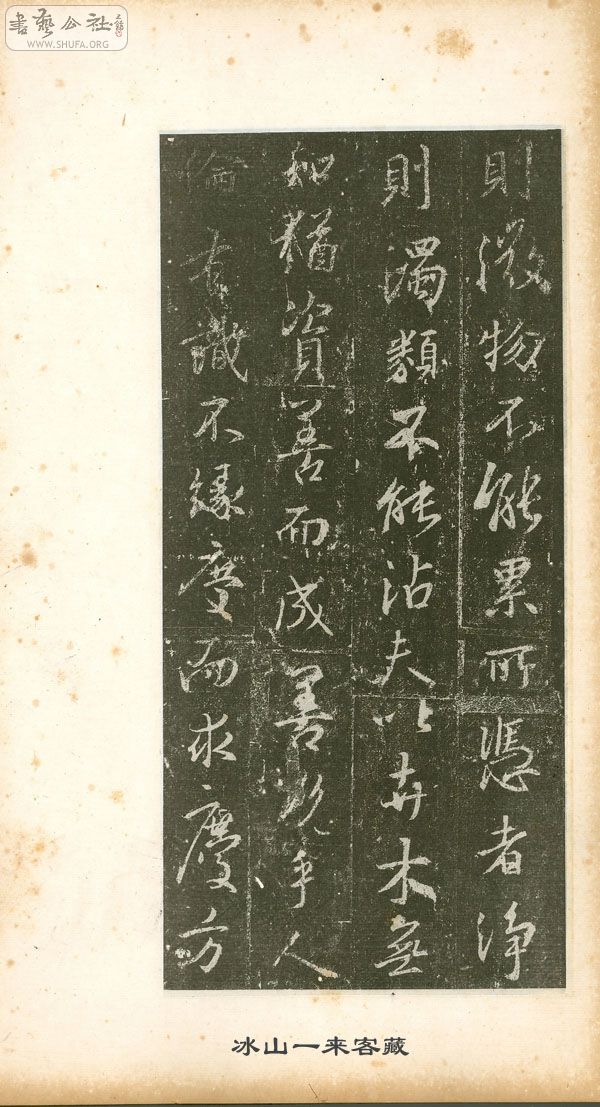 書藝公社
WWW.SHUFA.ORG
則微物不能累所憑者淨
則濁類不能沾夫以卉木無
知猶資善而成善況乎人
倫有識不緣慶而求慶方
冰山一来客藏